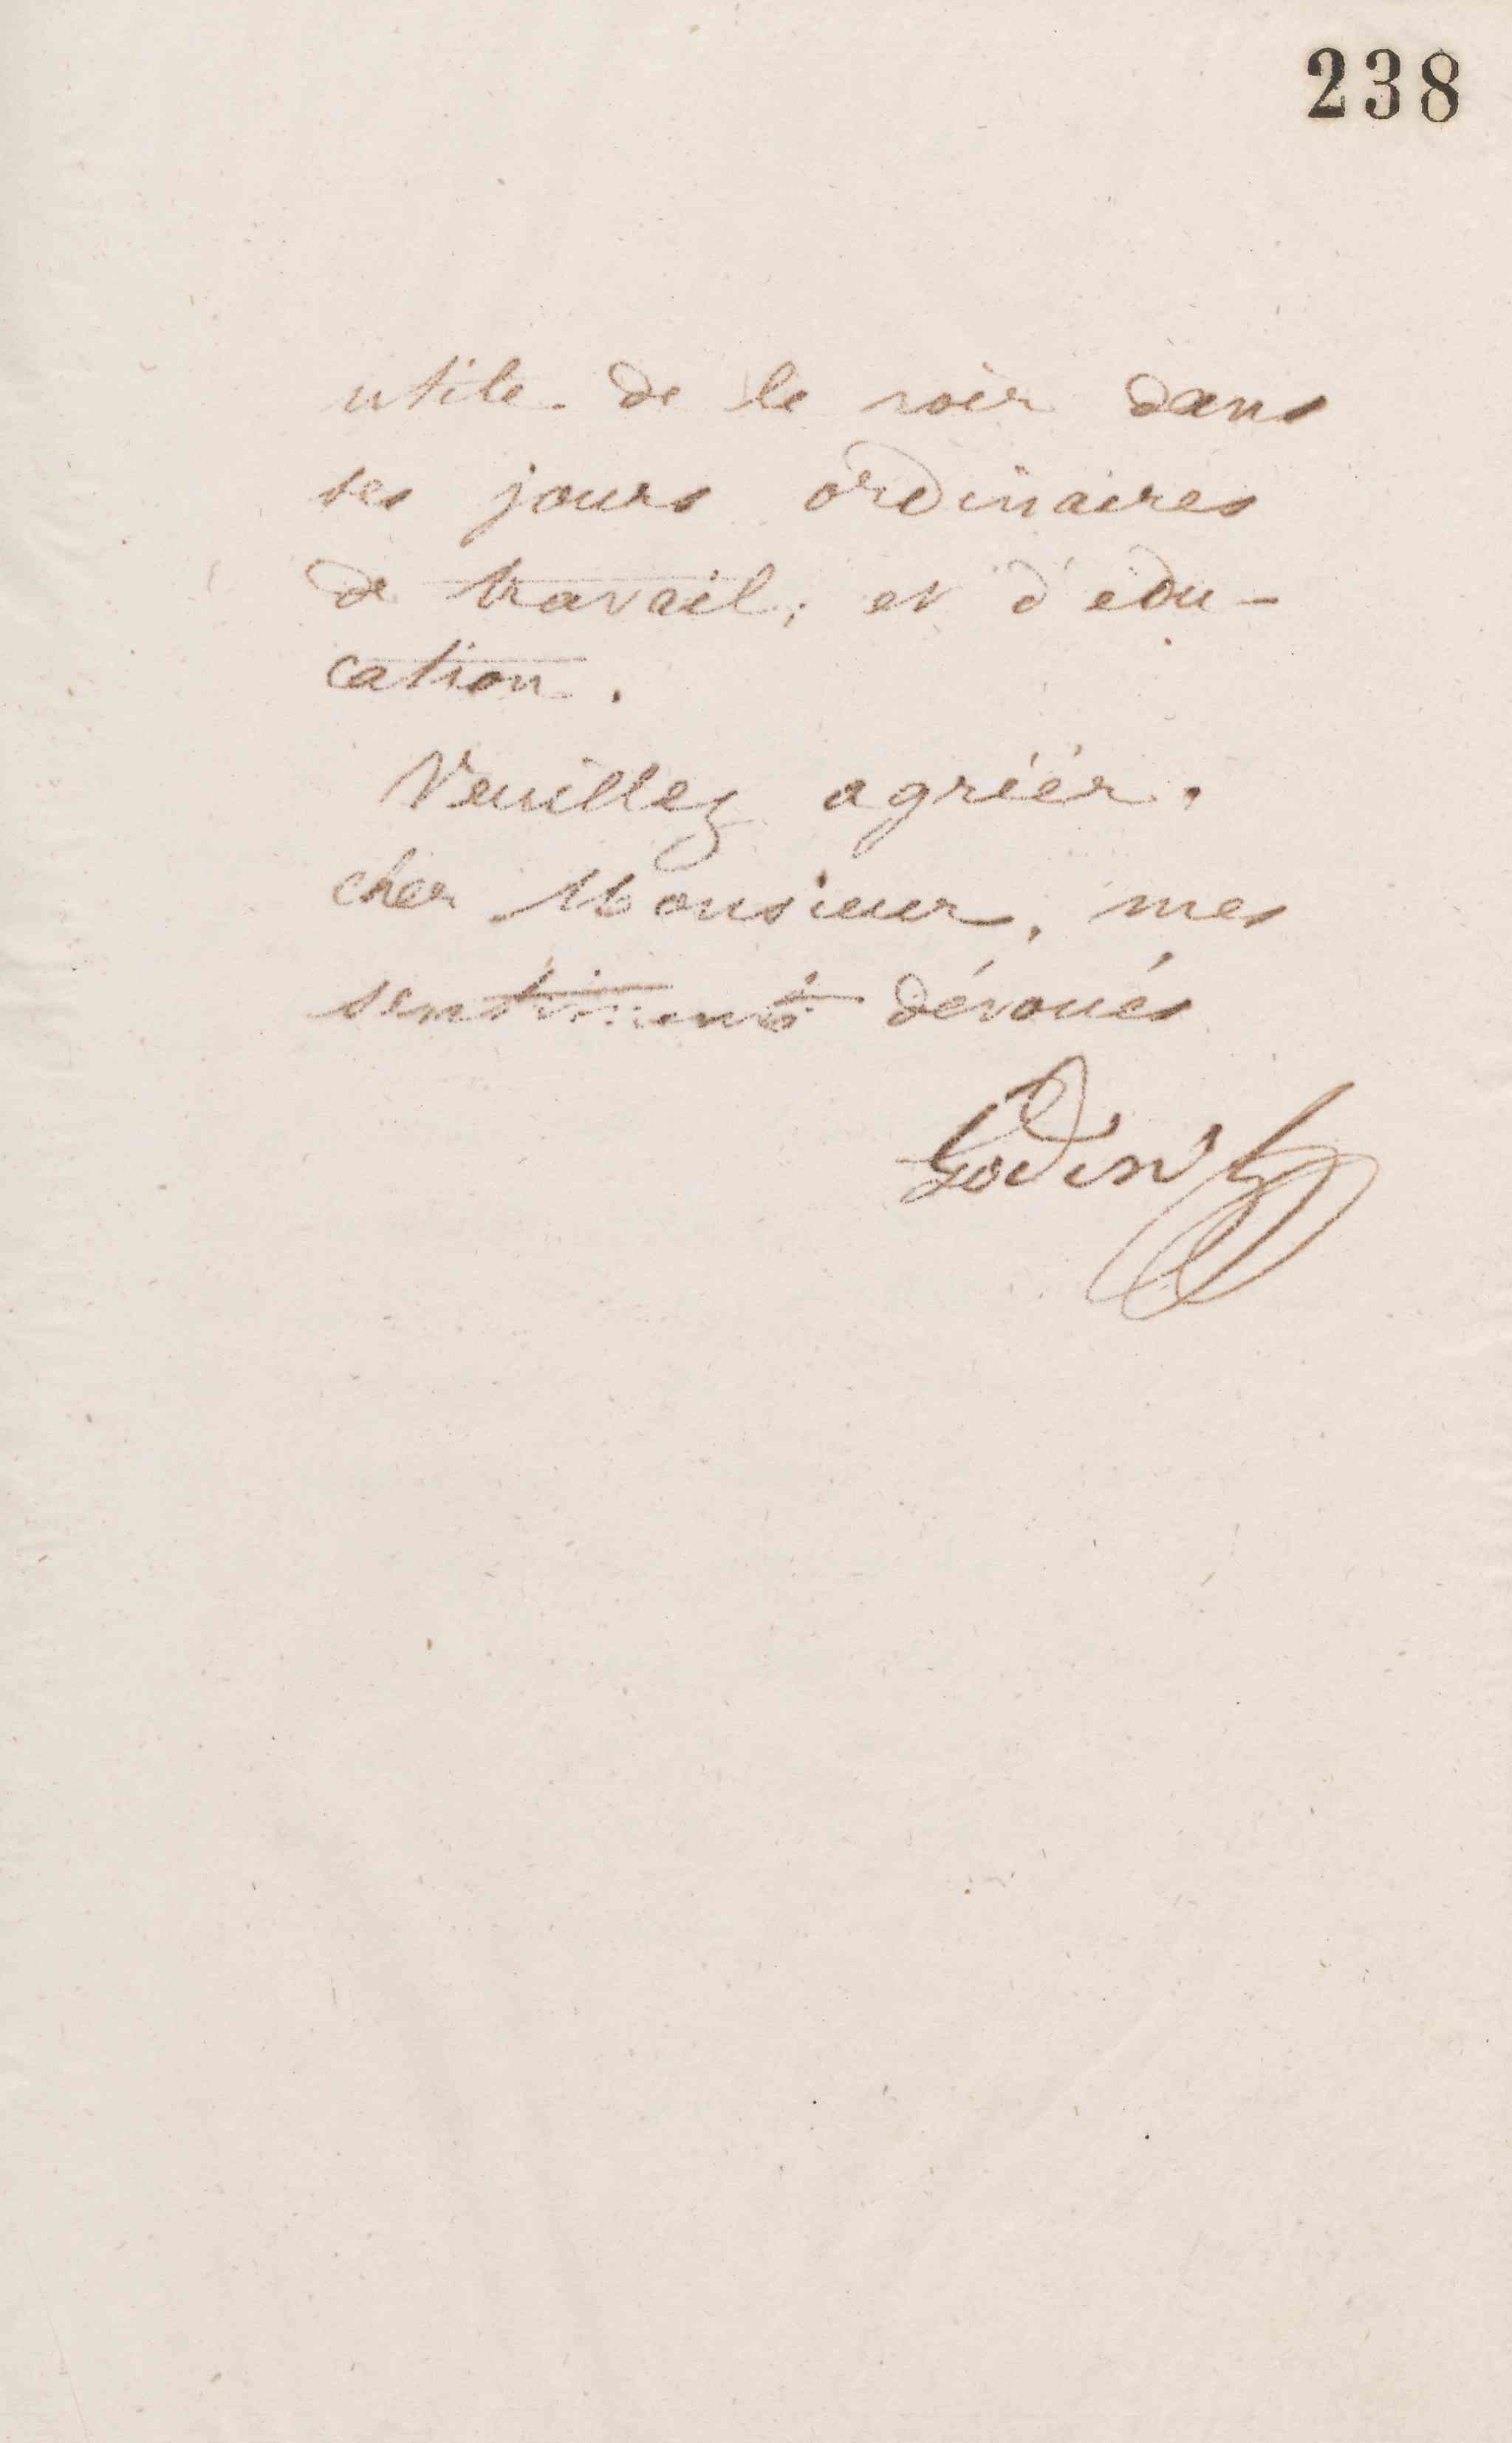 238
utile de le voir dans
ses jours ordinaires
de travail, et d'édu-
cation.
Veuillez agréer,
cher Monsieur, mes
sentiments dévoués
Godin